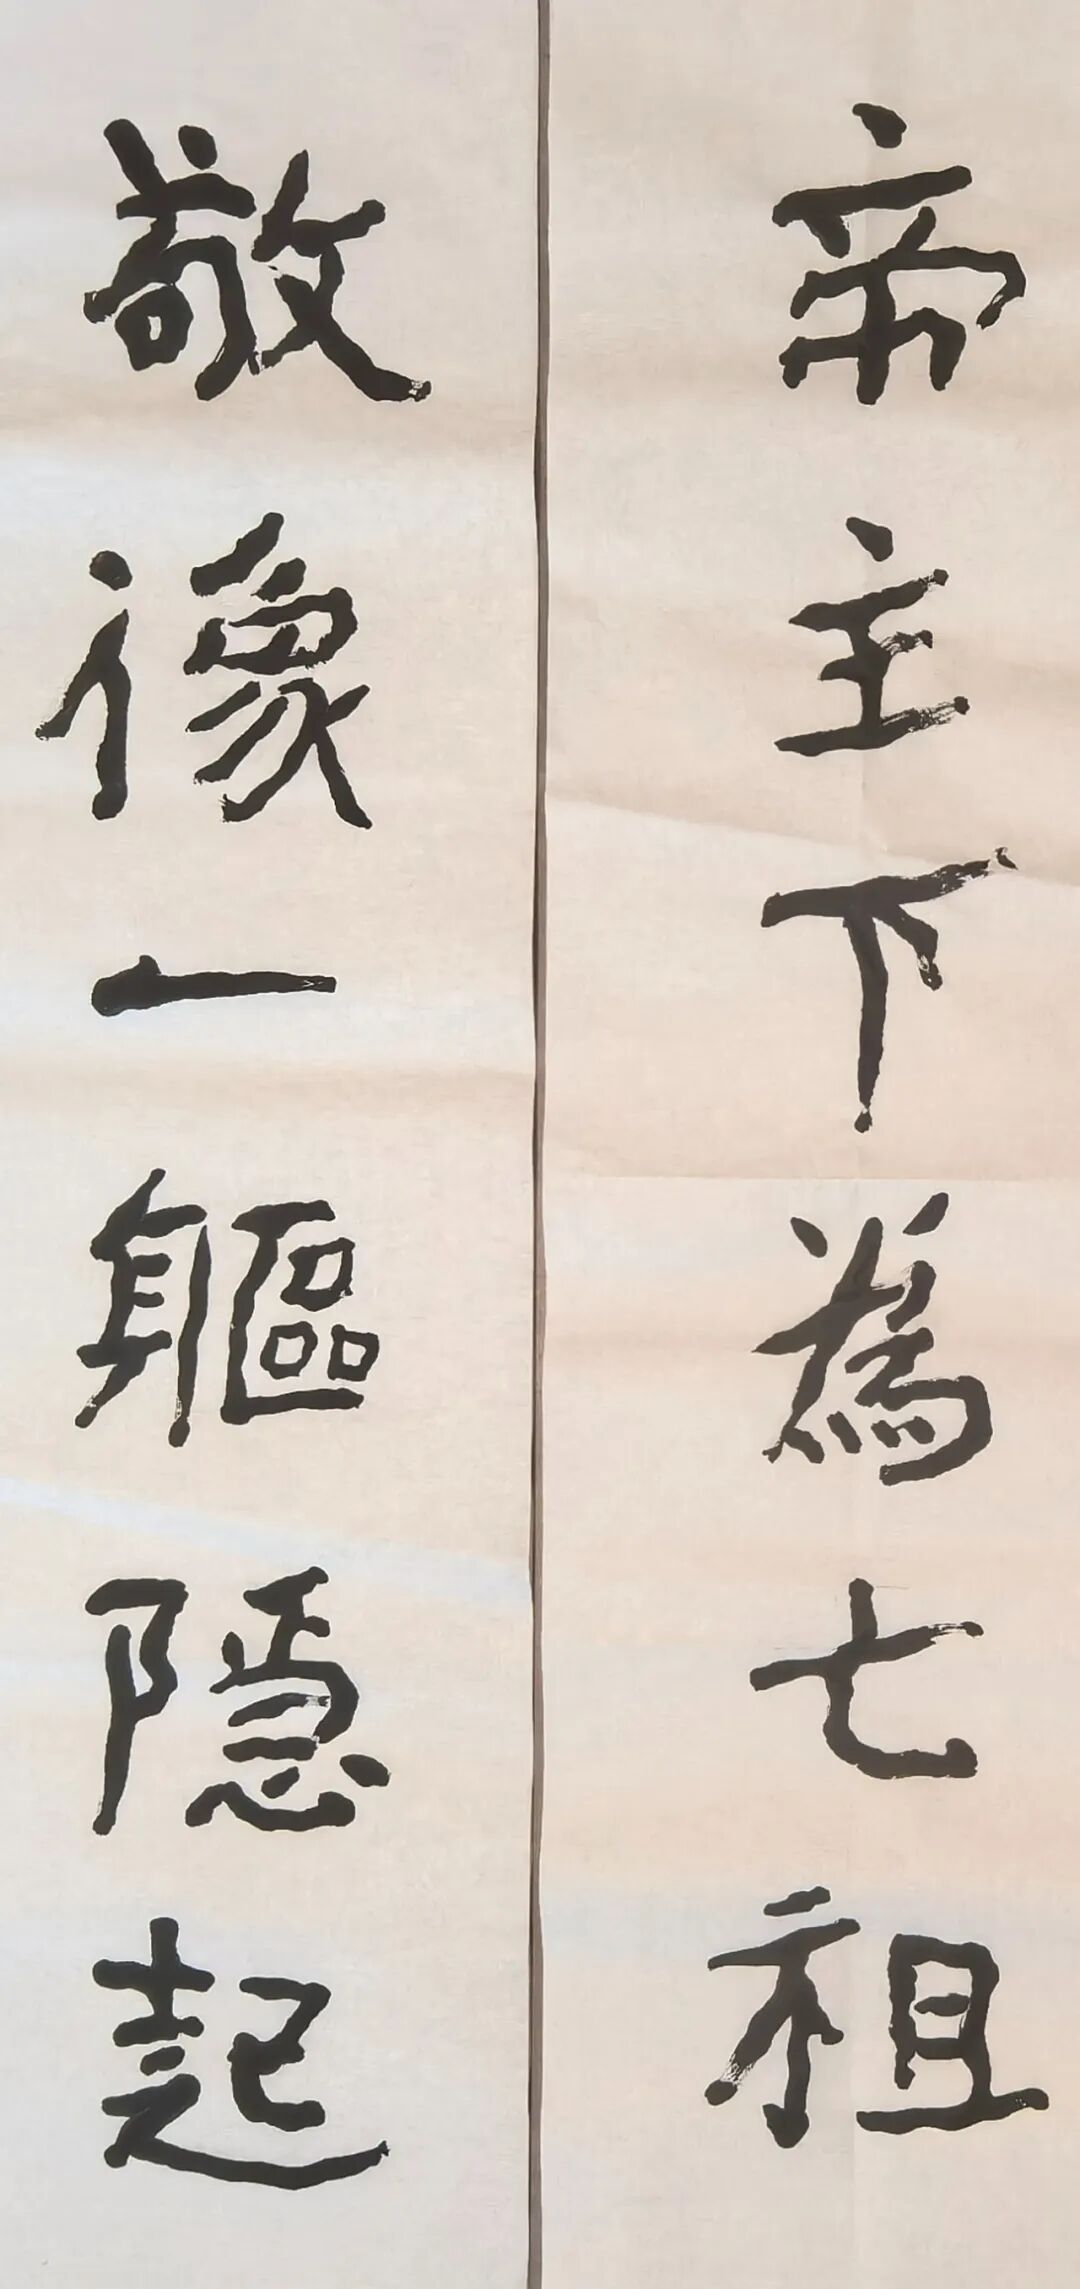 帝主下為七祖
敬像一軀隱起